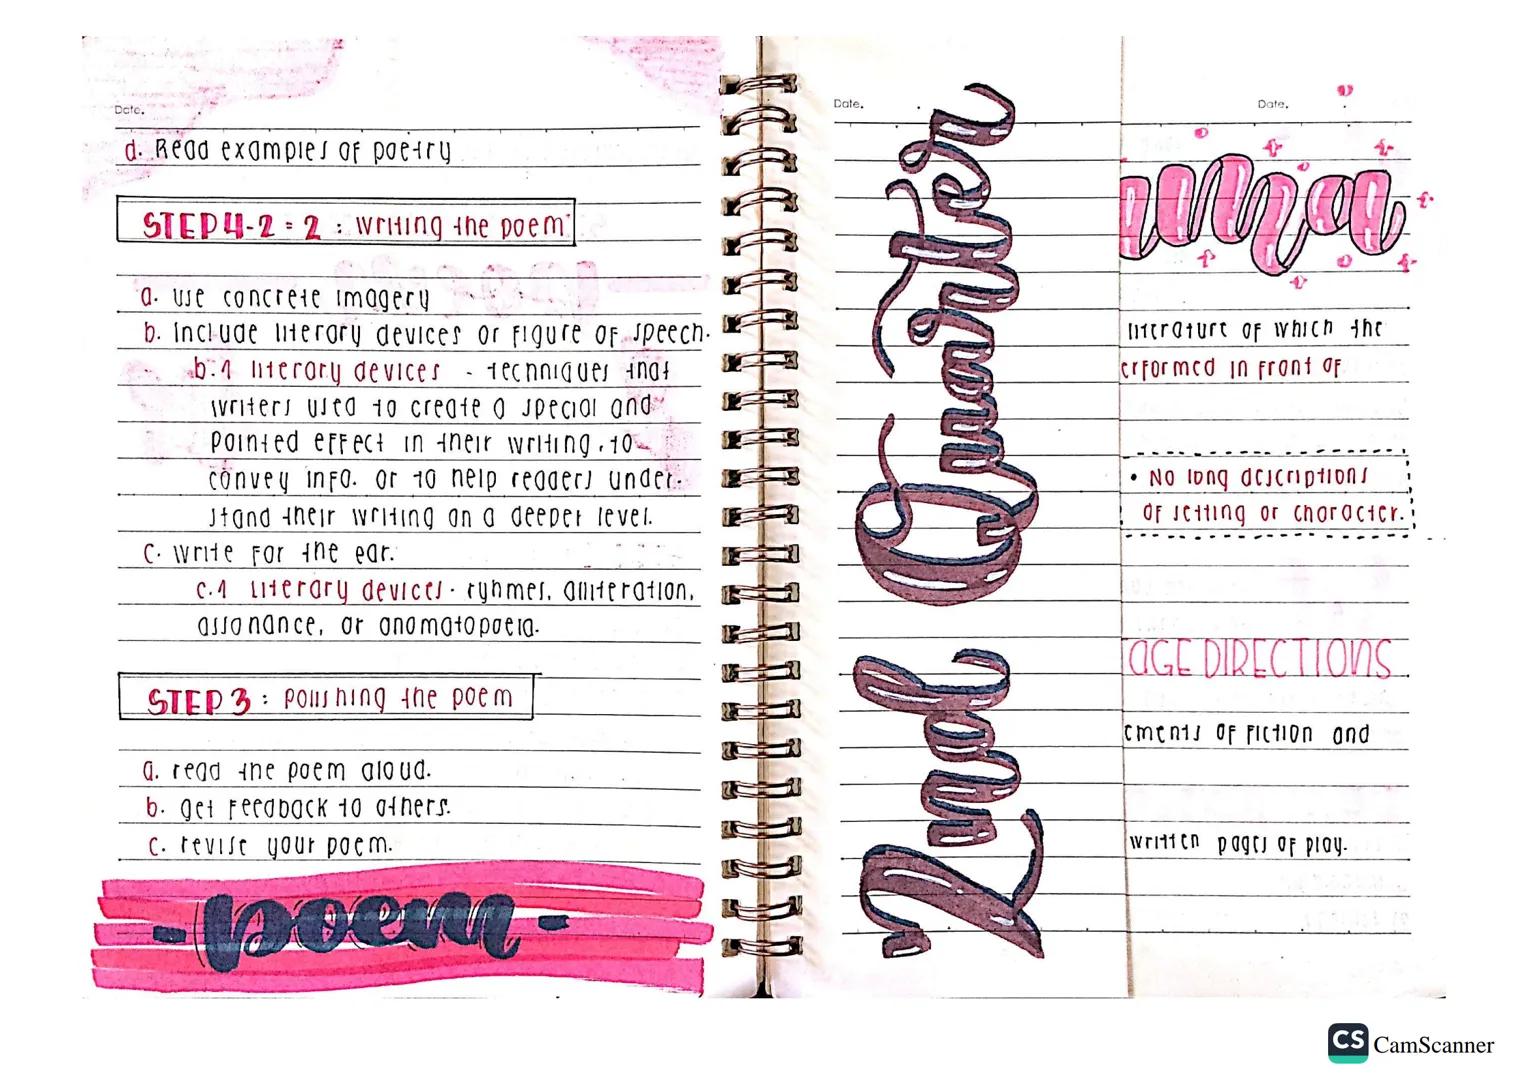 Date.
d. Read examples of poetry
STEP 4-2 = 2 : writing the poem
a. use concrete imagery
b. Include literary devices or figure of speech.
b.1 literary devices - techniques that
writers used to create a special and
pointed effect in their writing, to
convey info. or to help readers under-
stand their writing on a deeper level.
c. write for the ear.
c.1 literary devices - ryhmes, alliteration,
assonance, or onomatopoeia.
STEP 3 : polishing the poem
a. read the poem aloud.
b. get feedback to others.
c. revise your poem.
- poem -
Date.
2nd Quarter
Date.
ama
literature of which the
erformed in front of
• No long descriptions
of setting or character.
AGE DIRECTIONS
ements of fiction and
written pages of play.
CS CamScanner